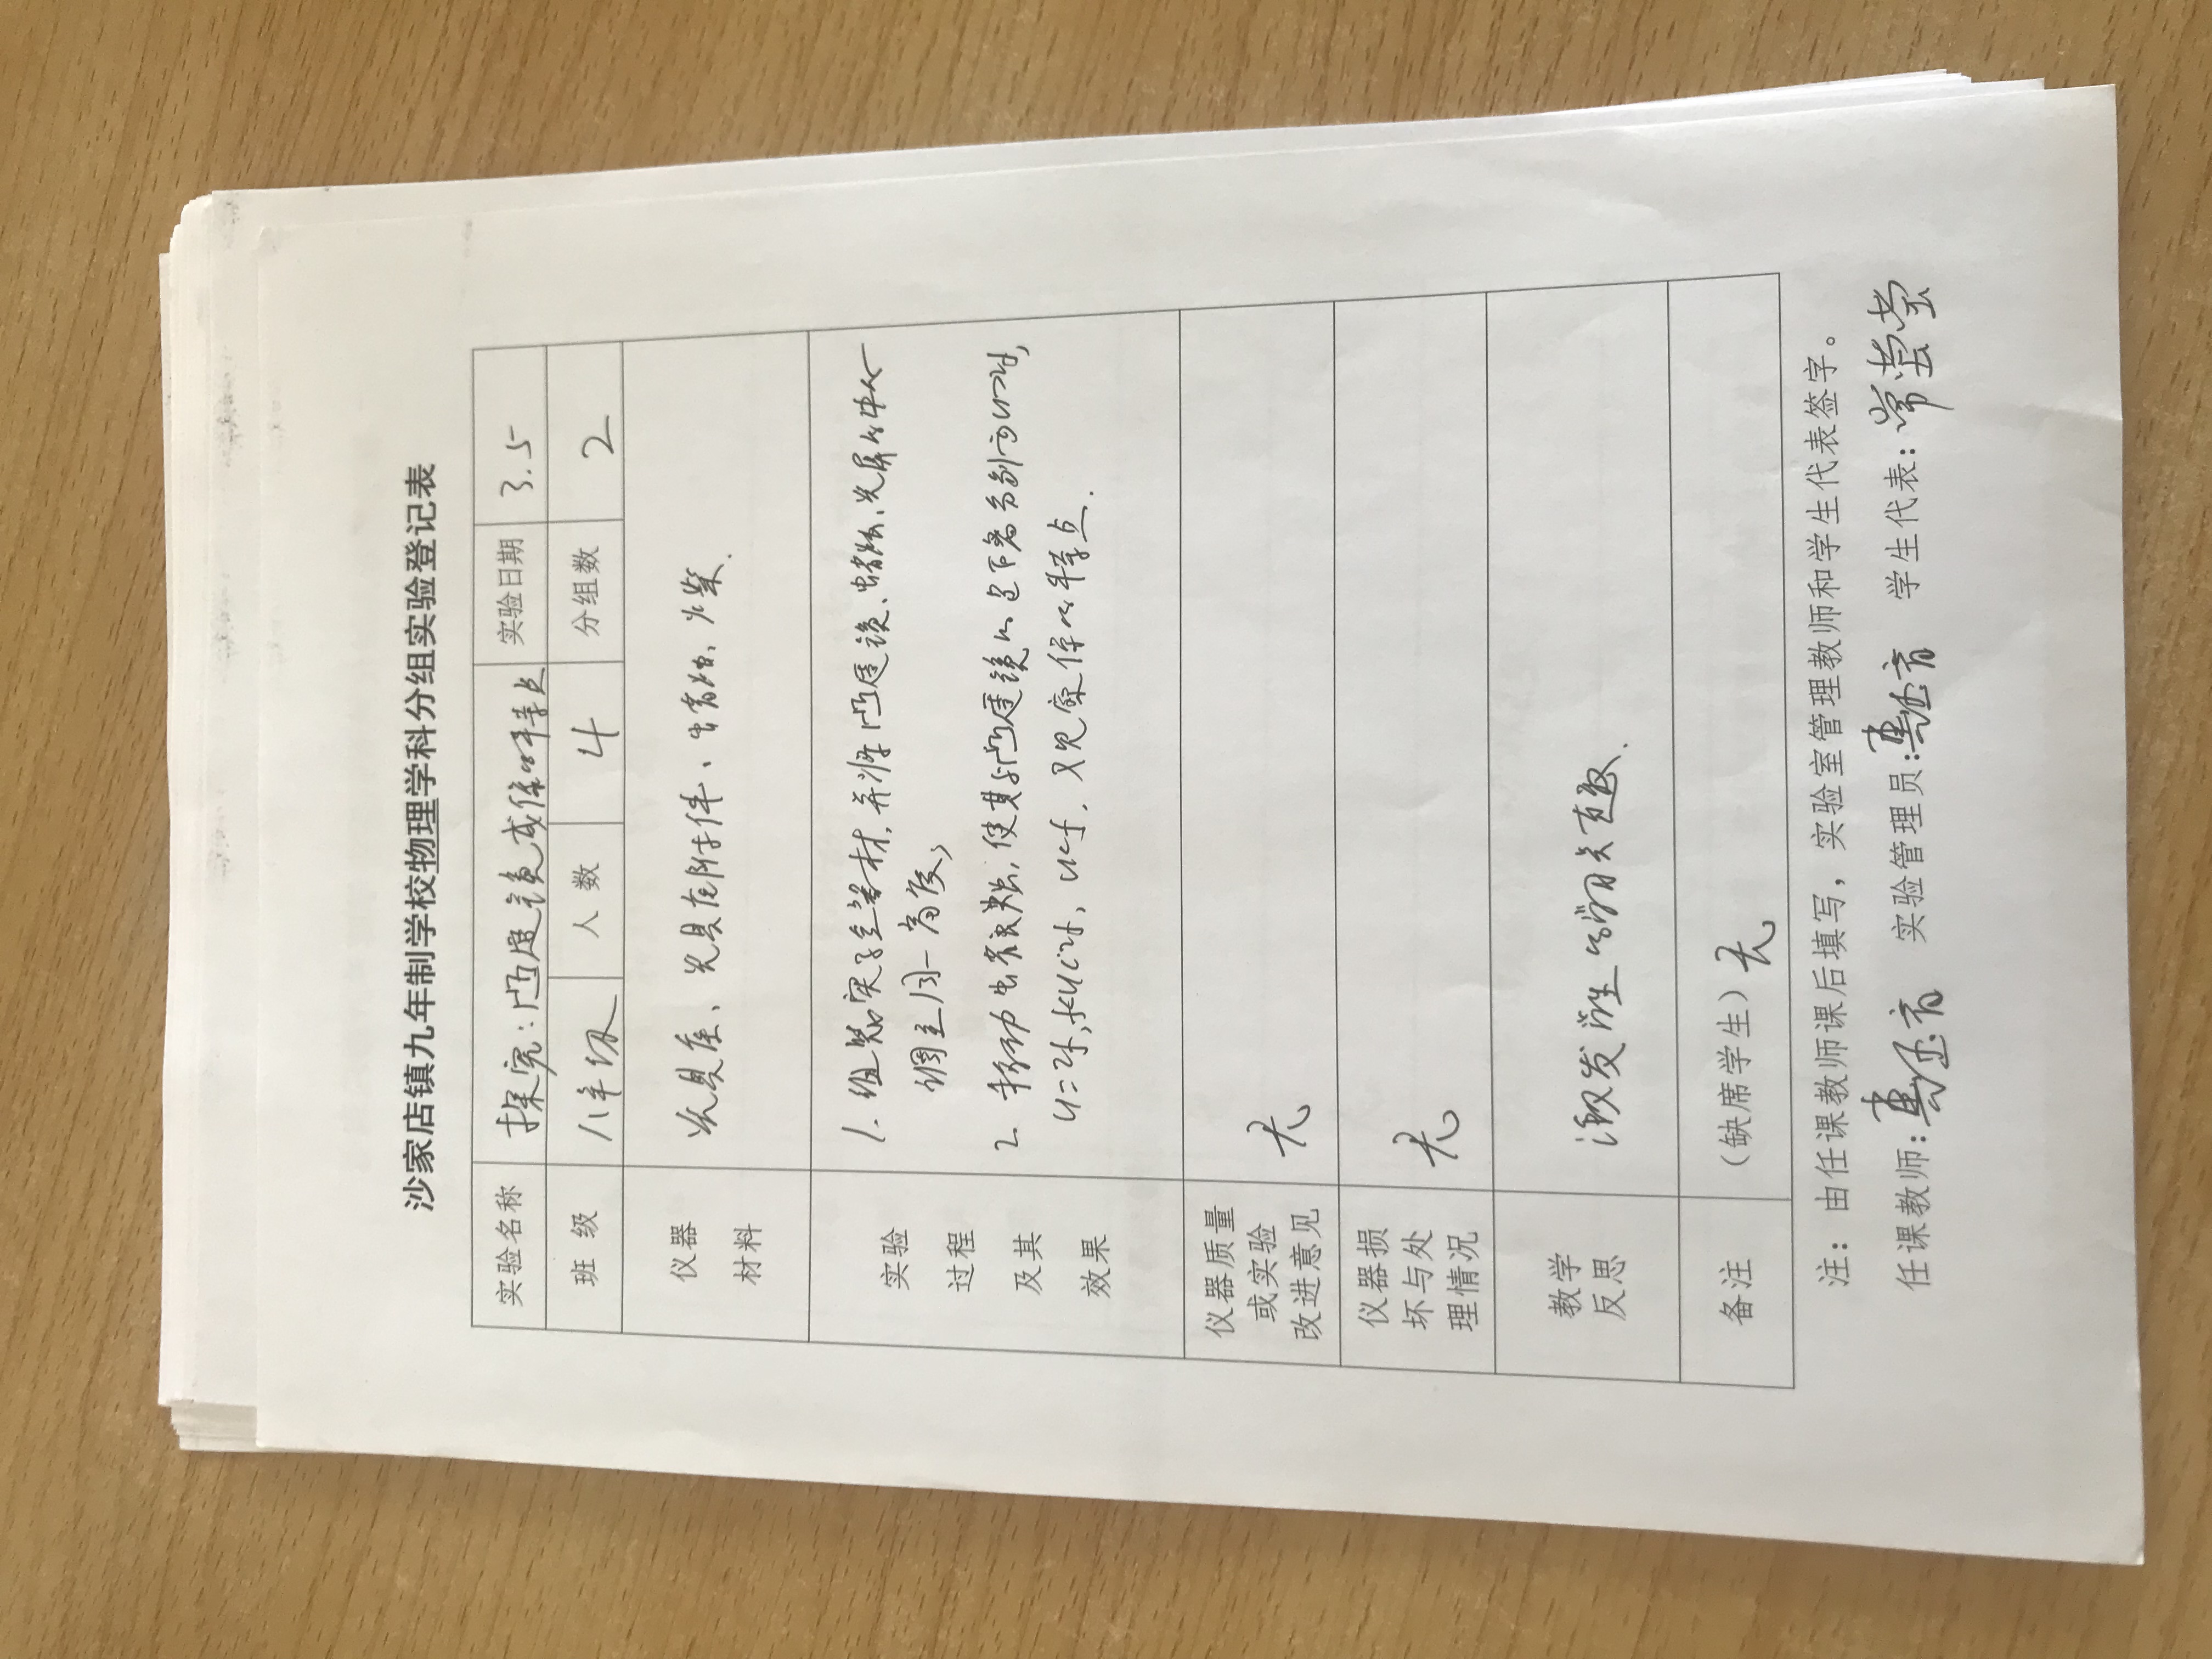 沙家店镇九年制学校物理学科分组实验登记表
实验名称 探究:凸透镜成像的特点 实验日期 3.5
班 级 八年级 人 数 4 分组数 2
仪器 材料 光具座、光具座附件、蜡烛、火柴.
实验 过程 及其 效果
1. 组装实验器材,并将凸透镜、蜡烛、光屏的中心
调至同一高度,
2. 移动蜡烛,使其与凸透镜的距离分别为u>2f,
u=2f,f<u<2f, u<f, 观察像的特点.
仪器质量 或实验 改进意见 无
仪器损 坏与处 理情况 无
教学 反思 激发学生学习兴趣.
备注 (缺席学生)无
注:由任课教师课后填写,实验室管理教师和学生代表签字。
任课教师: 实验管理员: 学生代表:常